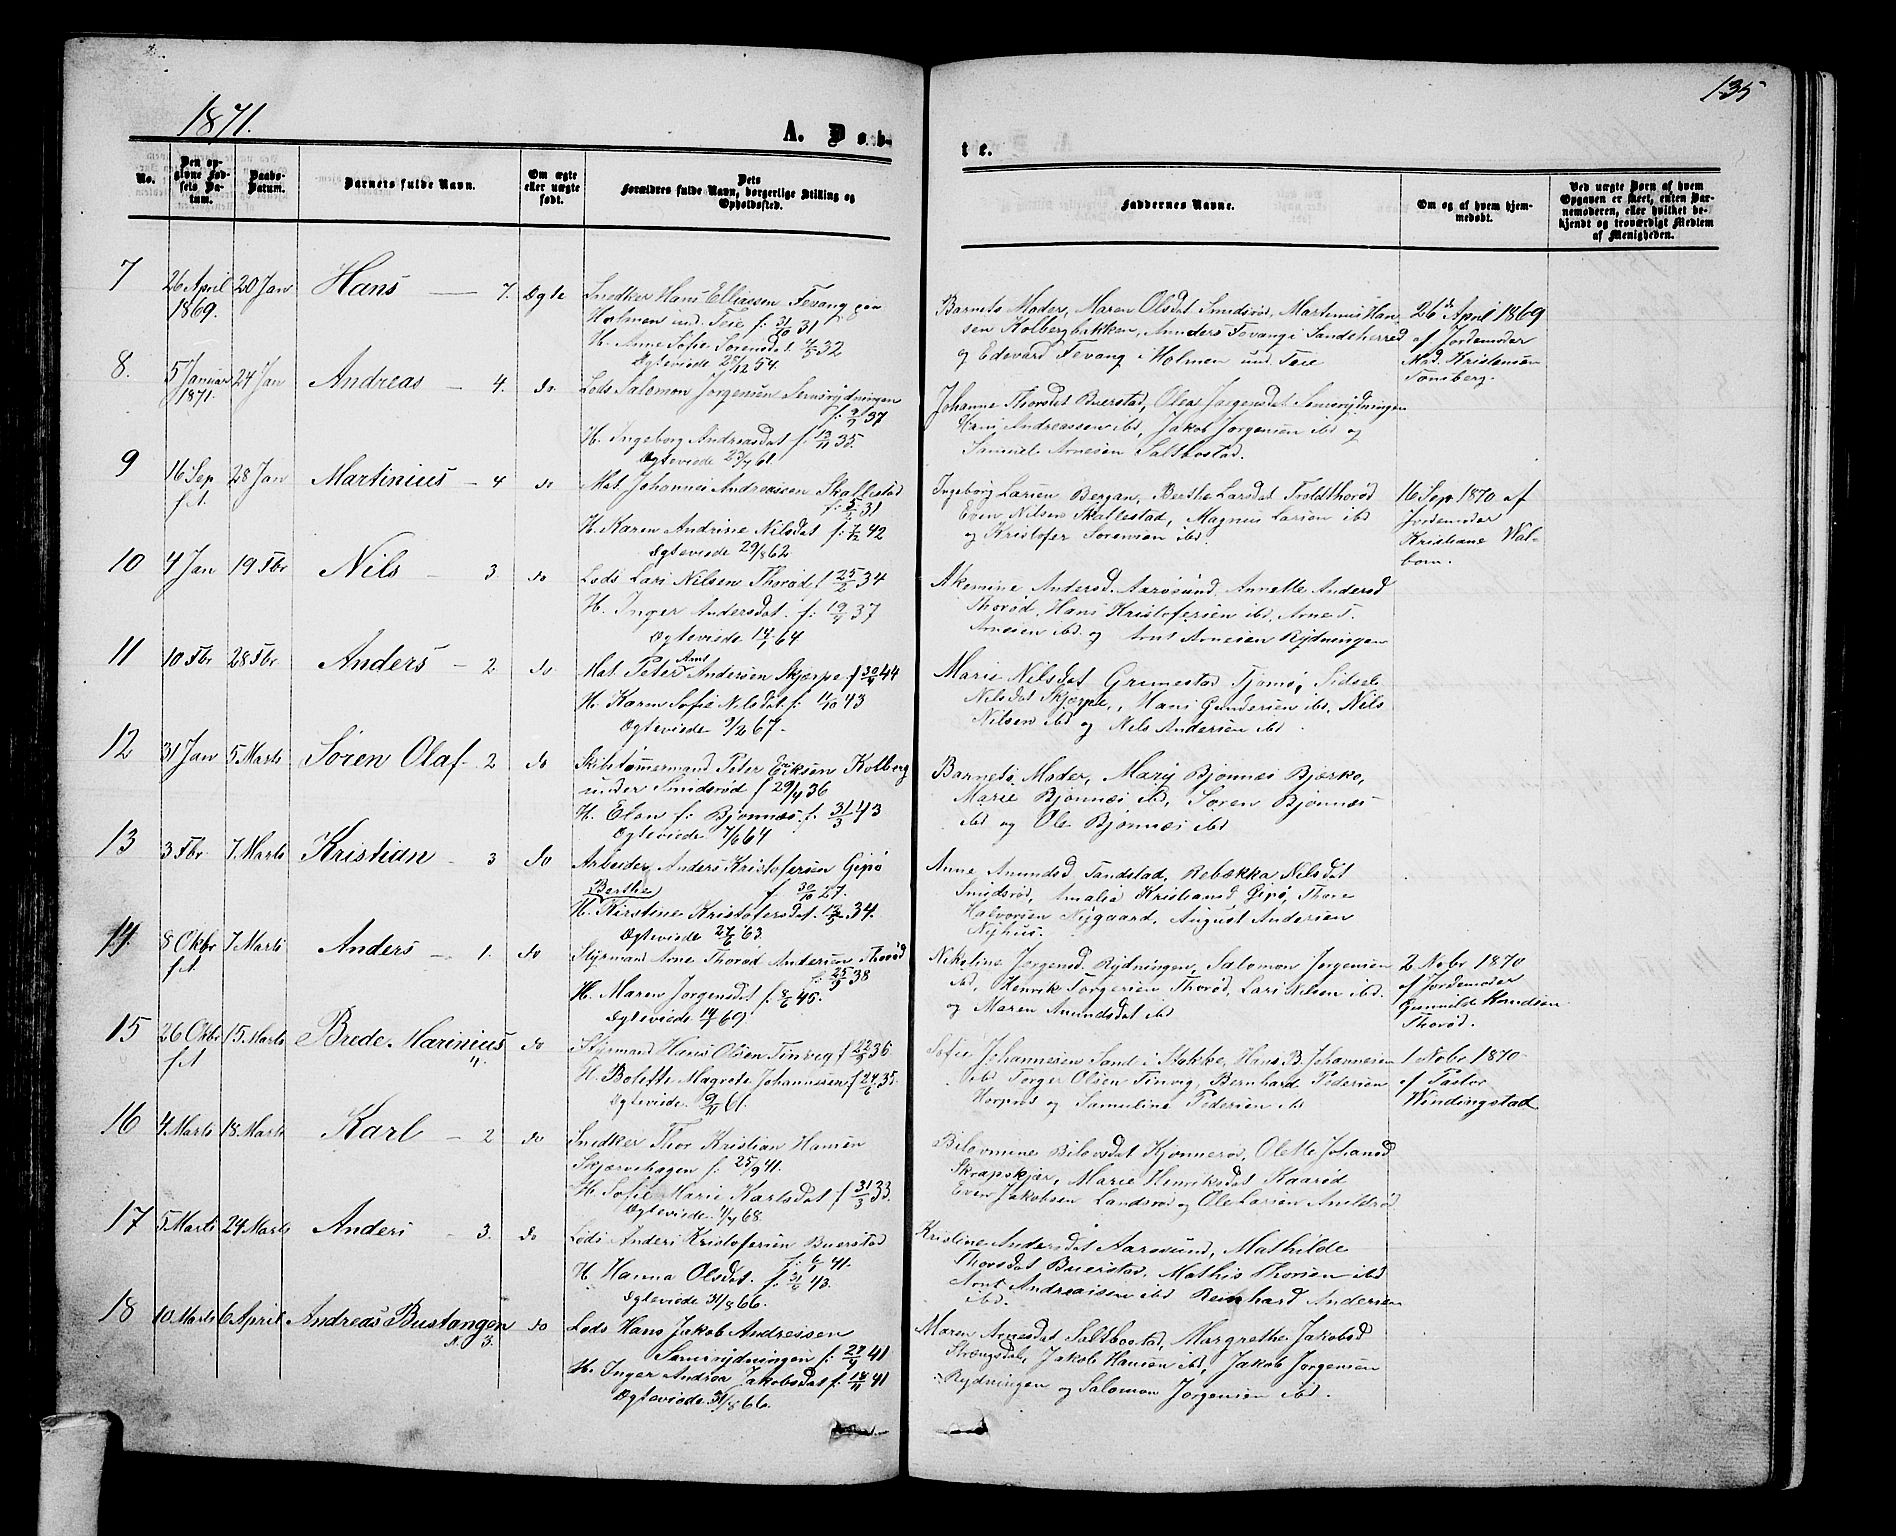 135
1871.
A. Døb-
te.
No.
Den opgivne Fødsels Datum.
Daabs-Datum.
Barnets fulde Navn.
Om ægte eller uægte født.
Dets Forældres fulde Navn, borgerlige Stilling og Opholdssted.
Faddernes Navne.
Om og af hvem hjemmedøbt.
Ved uægte Børn af hvem Opgaven er skeet, enten Barnemoderen, eller hvilket bekjendt og troværdigt Medlem af Menigheden.
7 26 April 1869. 20 Jan Hans — 7. Ægte
Snedker Hans Elliassen Fevang paa
Holmen und. Teie f. 31/10 31
H. Anne Sofie Sørensdat 4/5 32
Ægteviede 28/12 54.
Barnets Moder, Maren Olsdat Smidsrød, Martinus Han-
sen Kolbergbakken, Anders Fevang i Sandeherred
og Edevard Fevang i Holmen und Teie
26de April 1869
af Jordemoder
Mad. Kristensen
Tønsberg.
8. 5 Januar 1871. 24 Jan Andreas — 4. do.
Lods Salomon Jørgensen Semsrydningen
f. 9/9 37
H. Ingeborg Andreasdat f. 13/11 35.
Ægteviede 23/4 61.
Johanne Thorsdat Buerstad, Olea Jørgensdat Semsrydningen
Hans Andreassen ibd, Jakob Jørgensen ibd og
Samuel Arnesen Saltbostad.
9 16 Sep f.A. 28 Jan Martinius — 4 do
Mat. Johannes Andreassen Skallestad
f. 5/2 31
H. Karen Andrine Nilsdat f. 7/12 42
Ægteviede 29/8 62
Ingeborg Larsen Bergan, Berthe Larsdat Troldthorød
Even Nilsen Skallestad, Magnus Larsen ibd
og Kristofer Sørensen ibd.
16 Sep. 1870 af
Jordemoder
Kristiane Wal-
born.
10 4 Jan 19 Fbr Nils — 3 do
Lods Lars Nilsen Thorød f 25/2 34
H. Inger Andersdat f. 19/9 37
Ægteviede 14/1 64
Akemine Andersd. Aarøsund, Annette Andersd
Thorød, Hans Kristofersen ibd, Arne T.
Arnesen ibd. og Arnt Arnesen Rydningen
11 10 Fbr 28 Fbr Anders — 2. do
Mat. Peter Arnt Andersen Skjærpe f 30/9 44
H. Karen Sofie Nilsdat f. 11/10 43
Ægteviede 9/2 67.
Marie Nilsdat Grimestad Tjømø, Sidsel
Nilsdat Skjerpe, Hans Gundersen ibd, Nils
Nilsen ibd og Nils Andersen ibd.
12 31 Jan 5 Marts Søren Olaf — 2 do
Skibstømmermand Peter Eriksen Kolberg
under Smidsrød f 29/4 36
H. Elen f. Bjønnæs f. 31/3 43
Ægteviede 7/6 64
Barnets Moder, Mary Bjønnæs Bjærkø,
Marie Bjønnæs ibd, Søren Bjønnæs
ibd og Ole Bjønnæs ibd
13 3 Fbr. 7 Marts Kristian — 3 do
Arbeider Anders Kristofersen Gipø
f. 30/10 27.
Berthe
H. Kirstine Kristofersdat. 13/5 34.
Ægteviede 27/6 63.
Anne Amundsd. Sandstad, Rebekka Nilsdat
Smidsrød, Amalia Kristiansd. Gipø, Thore
Halvorsen Nygaard, August Andersen
Nyhus.
14. 8 Okbr f.A. 7 Marts Anders — 1. do
Styrmand Arne Thorød Andersen Thorød
f. 25/9 38
H. Maren Jørgensdat f. 8/6 45.
Ægteviede 14/1 69.
Nikoline Jørgensd. Rydningen, Salomon Jørgensen
ibd, Henrik Torgersen Thorød, Lars Nilsen ibd.
og Maren Amundsdat ibd
2 Nobr 1870
af Jordemoder
Gunnilde Knudsen
Thorød.
15 26 Okbr f.A 15 Marts Brede Marinius 4. do
Styrmand Hans Olsen Tinvig f 22/9 36
H. Bolette Magrete Johannesen f 24/6 35.
Ægteviede 9/11 61.
Sofie Johannesen Sand i Stokke, Hans B. Johannesen
ibd Torger Olsen Tinvig, Bernhard Pedersen
og Samuline Pedersen ib
1 Nobr 1870
af Pastor
Windingstad
16 4 Marts 18 Marts Karl — 2 do
Snedker Thor Kristian Hansen
Skjærvehagen f. 25/9 41.
H. Sofie Marie Karlsdat f 31/3 33.
Ægteviede 1/4 68.
Bilovmine Bilovsdat Kjønnerød, Olette Johansd
Skrapskjær, Marie Henriksdat Kaarød
Even Jakobsen Landsrød og Ole Larsen
17 5 Marts 24 Marts Anders — 3. do
Lods Anders Kristofersen Buerstad
f. 6/1 41.
H. Hanna Olsdat. f. 31/6 43.
Ægteviede 31/8 66.
Kristine Andersdat Aarøsund, Mathilde
Thorsdat Buerstad, Mathis Thorsen ibd
Arnt Andreassen ibd Reinhard Andersen
ibd.
18 10 Marts 6 April Andreas Bustangen 3. do
Lods Hans Jakob Andreasen
Semsrydningen f. 29/9 41
H. Inger Andrea Jakobsdat f. 18/11 41
Ægteviede 31/8 66.
Maren Arnesdat Saltbostad, Margrethe Jakobsd
Strengsdal, Jakob Hansen ibd, Jakob Jørgensen
Rydningen og Salomon Jørgensen ibd.